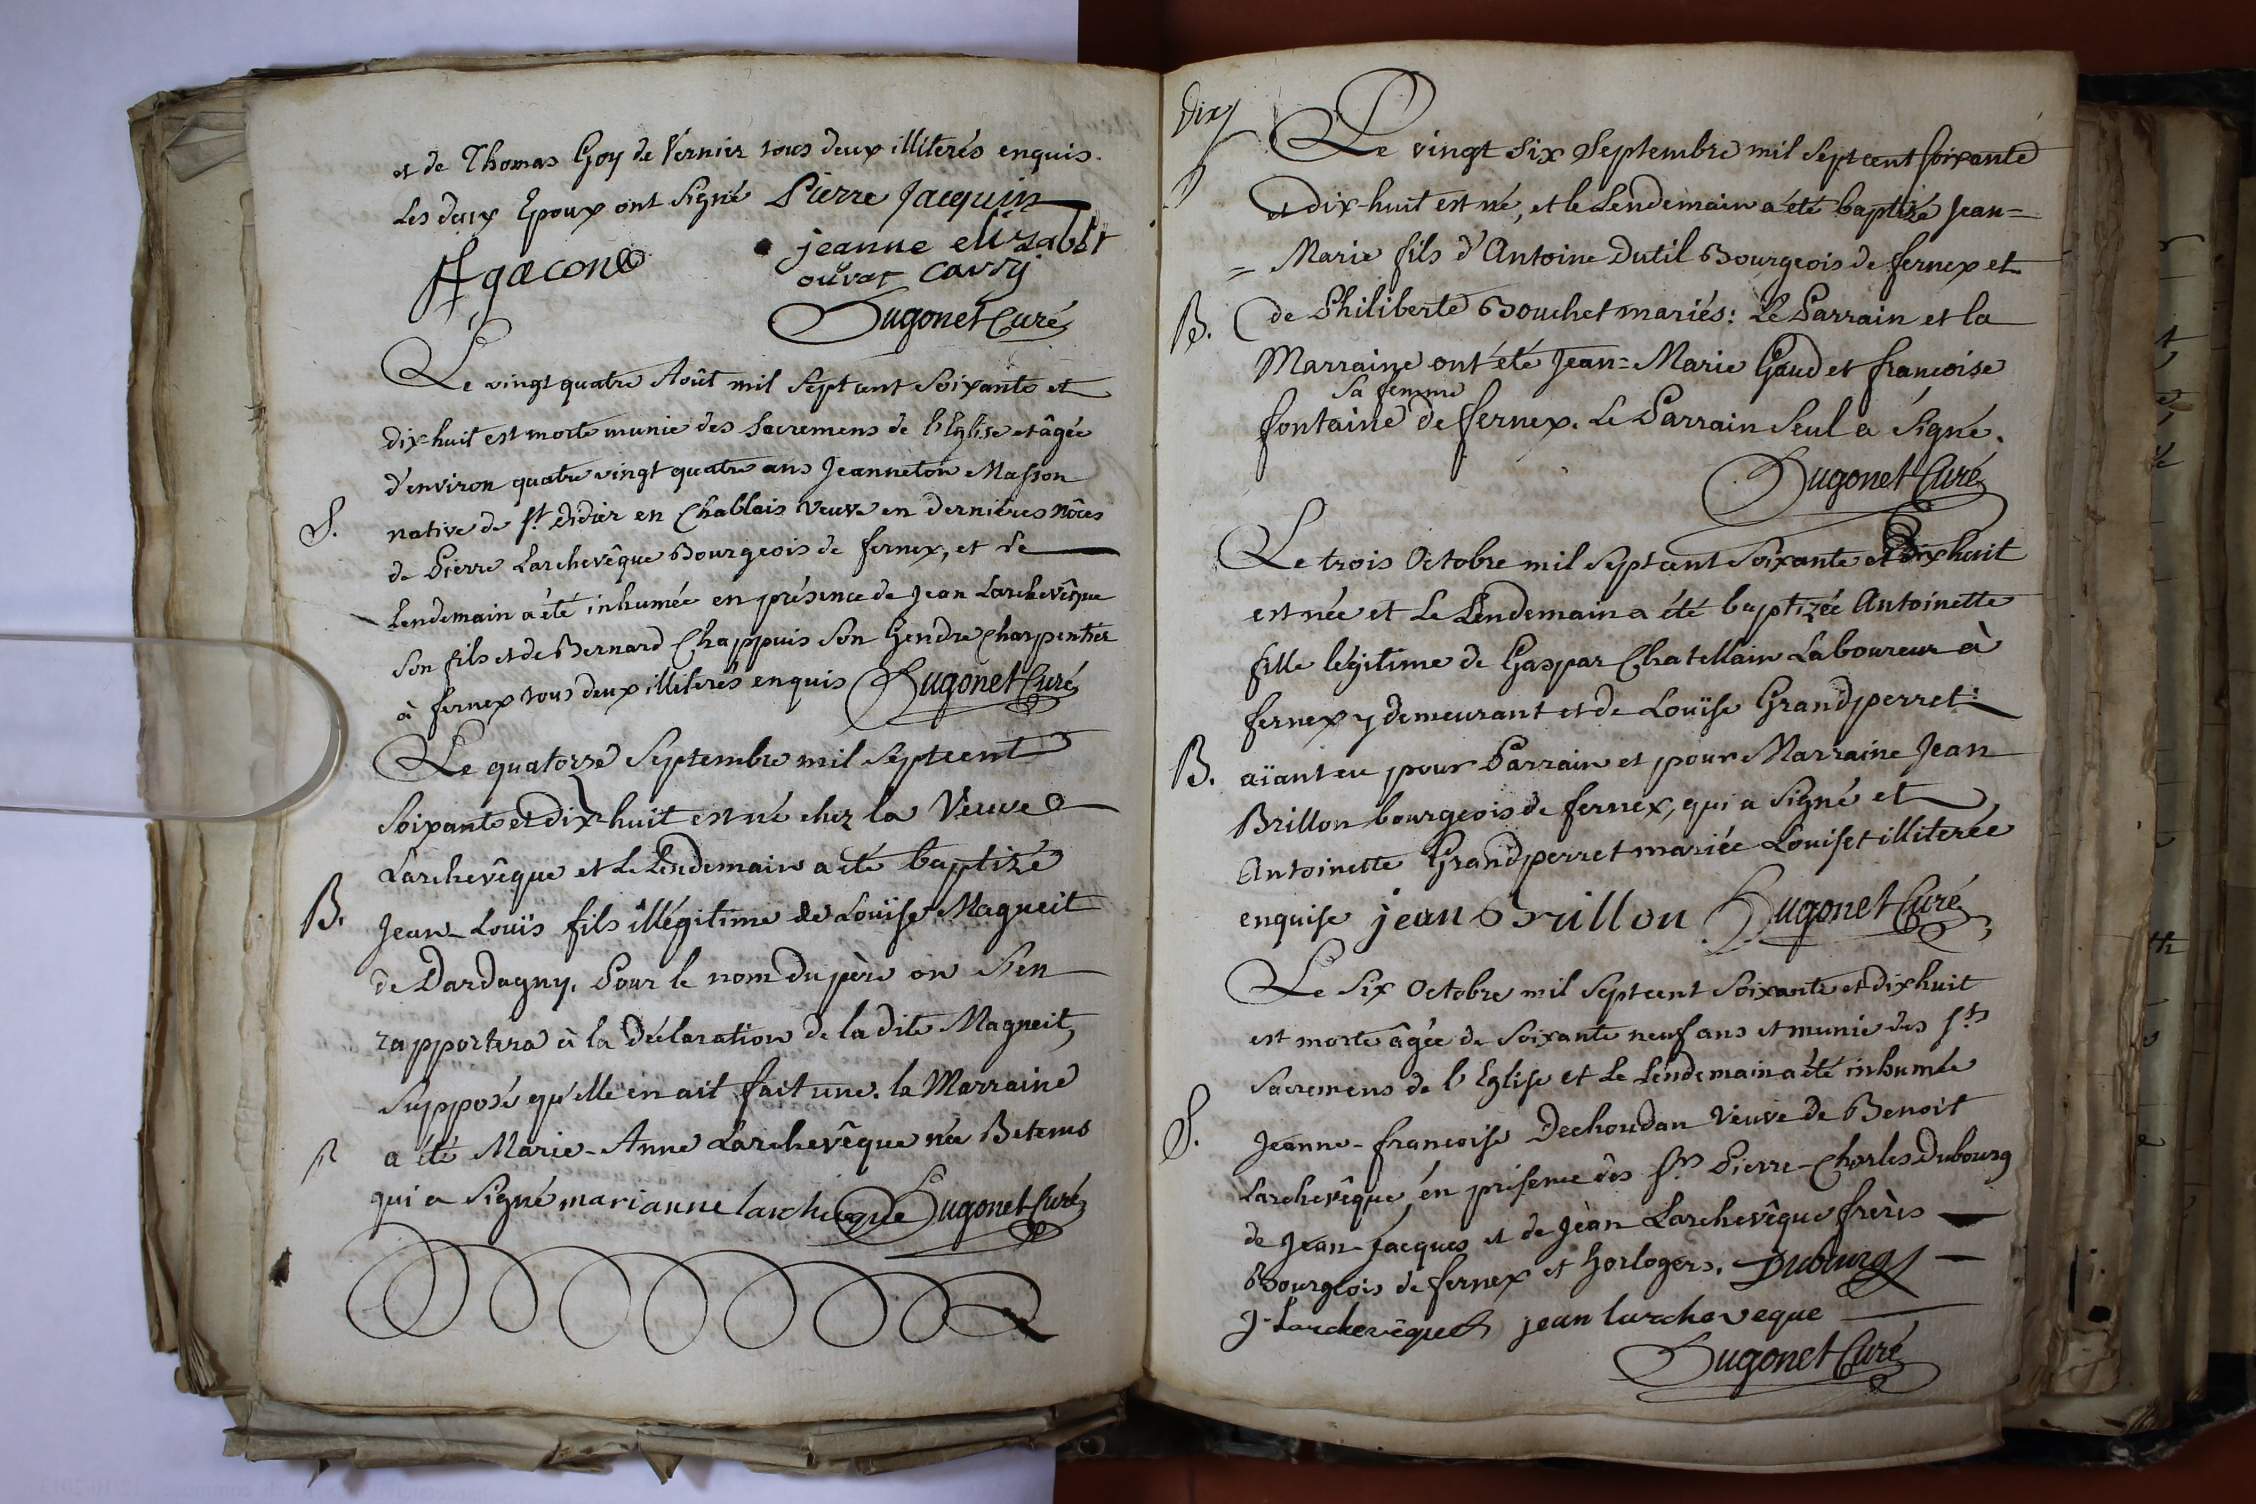 et de Thomas Goy de Vernier tous deux illiterés enquis.
Les deux Epoux ont Signé Pierre Jacquin
jeanne elizabet
gacon
ouvat
Hugonet Curé
Le vingt quatre Août mil Sept cent Soixante et
dix-huit est morte munie des Sacremens de l'Eglise et âgée
d'environ quatre vingt quatre ans Jeanneton Masson
S.
native de St. Didier en Chablais veuve en derniéres nôces
de Pierre Larchevêque Bourgeois de fernex, et le
Lendemain a été inhumée en présence de Jean Larchevêque
Son fils et de Bernard Chappuis Son Gendre Charpentier
à fernex tous deux illiterés enquis Hugonet Curé
Le quatorze Septembre mil Sept cent
Soixante et dix-huit est né chez la Veuve
Larchevêque et le Lendemain a été baptizé
B.
Jean-Louïs fils illégitime de Louïse Magneit
de Dardagny. Pour le nom du père on s'en
rapportera à la déclaration de la dite Magneit,
Supposé qu'elle en ait fait une. la Marraine
a été Marie-Anne Larchevêque née Betems
qui a Signé marianne larcheveque Hugonet Curé
Dix
Le vingt Six Septembre mil Sept cent Soixante
et dix-huit est né, et le Lendemain a été baptizé Jean=
= Marie fils d'Antoine Dutil Bourgeois de fernex et
B.
de Philiberte Bouchet mariés: Le Parrain et la
Marraine ont été Jean=Marie Gaud et francoise
Sa femme
fontaine de fernex. Le Parrain Seul a Signé.
Hugonet Curé
Le trois Octobre mil Sept cent Soixante et dix huit
est née et Le Lendemain a été baptizée Antoinette
fille légitime de Gaspar Chatellain Laboureur à
fernex y demeurant et de Louïse Grandperret:
B.
aïant eu pour Parrain et pour Marraine Jean
Brillon bourgeois de fernex, qui a Signé et
Antoinette Grandperret mariée Louiset illiterée
enquise jean Brillon Hugonet Curé
Le Six Octobre mil Sept cent Soixante et dix huit
est morte âgée de Soixante neuf ans et munie des Sts
Sacremens de l'Eglise et Le Lendemain a été inhumée
S.
Jeanne-francoise Dechoudan Veuve de Benoit
Larchevêque, en présence des Srs Pierre-Charles Dubourg
de Jean-Jacques et de Jean Larchevêque frères
Bourgeois de fernex et horlogers. Dubourg
J. Larchevêque jean larcheveque
Hugonet Curé